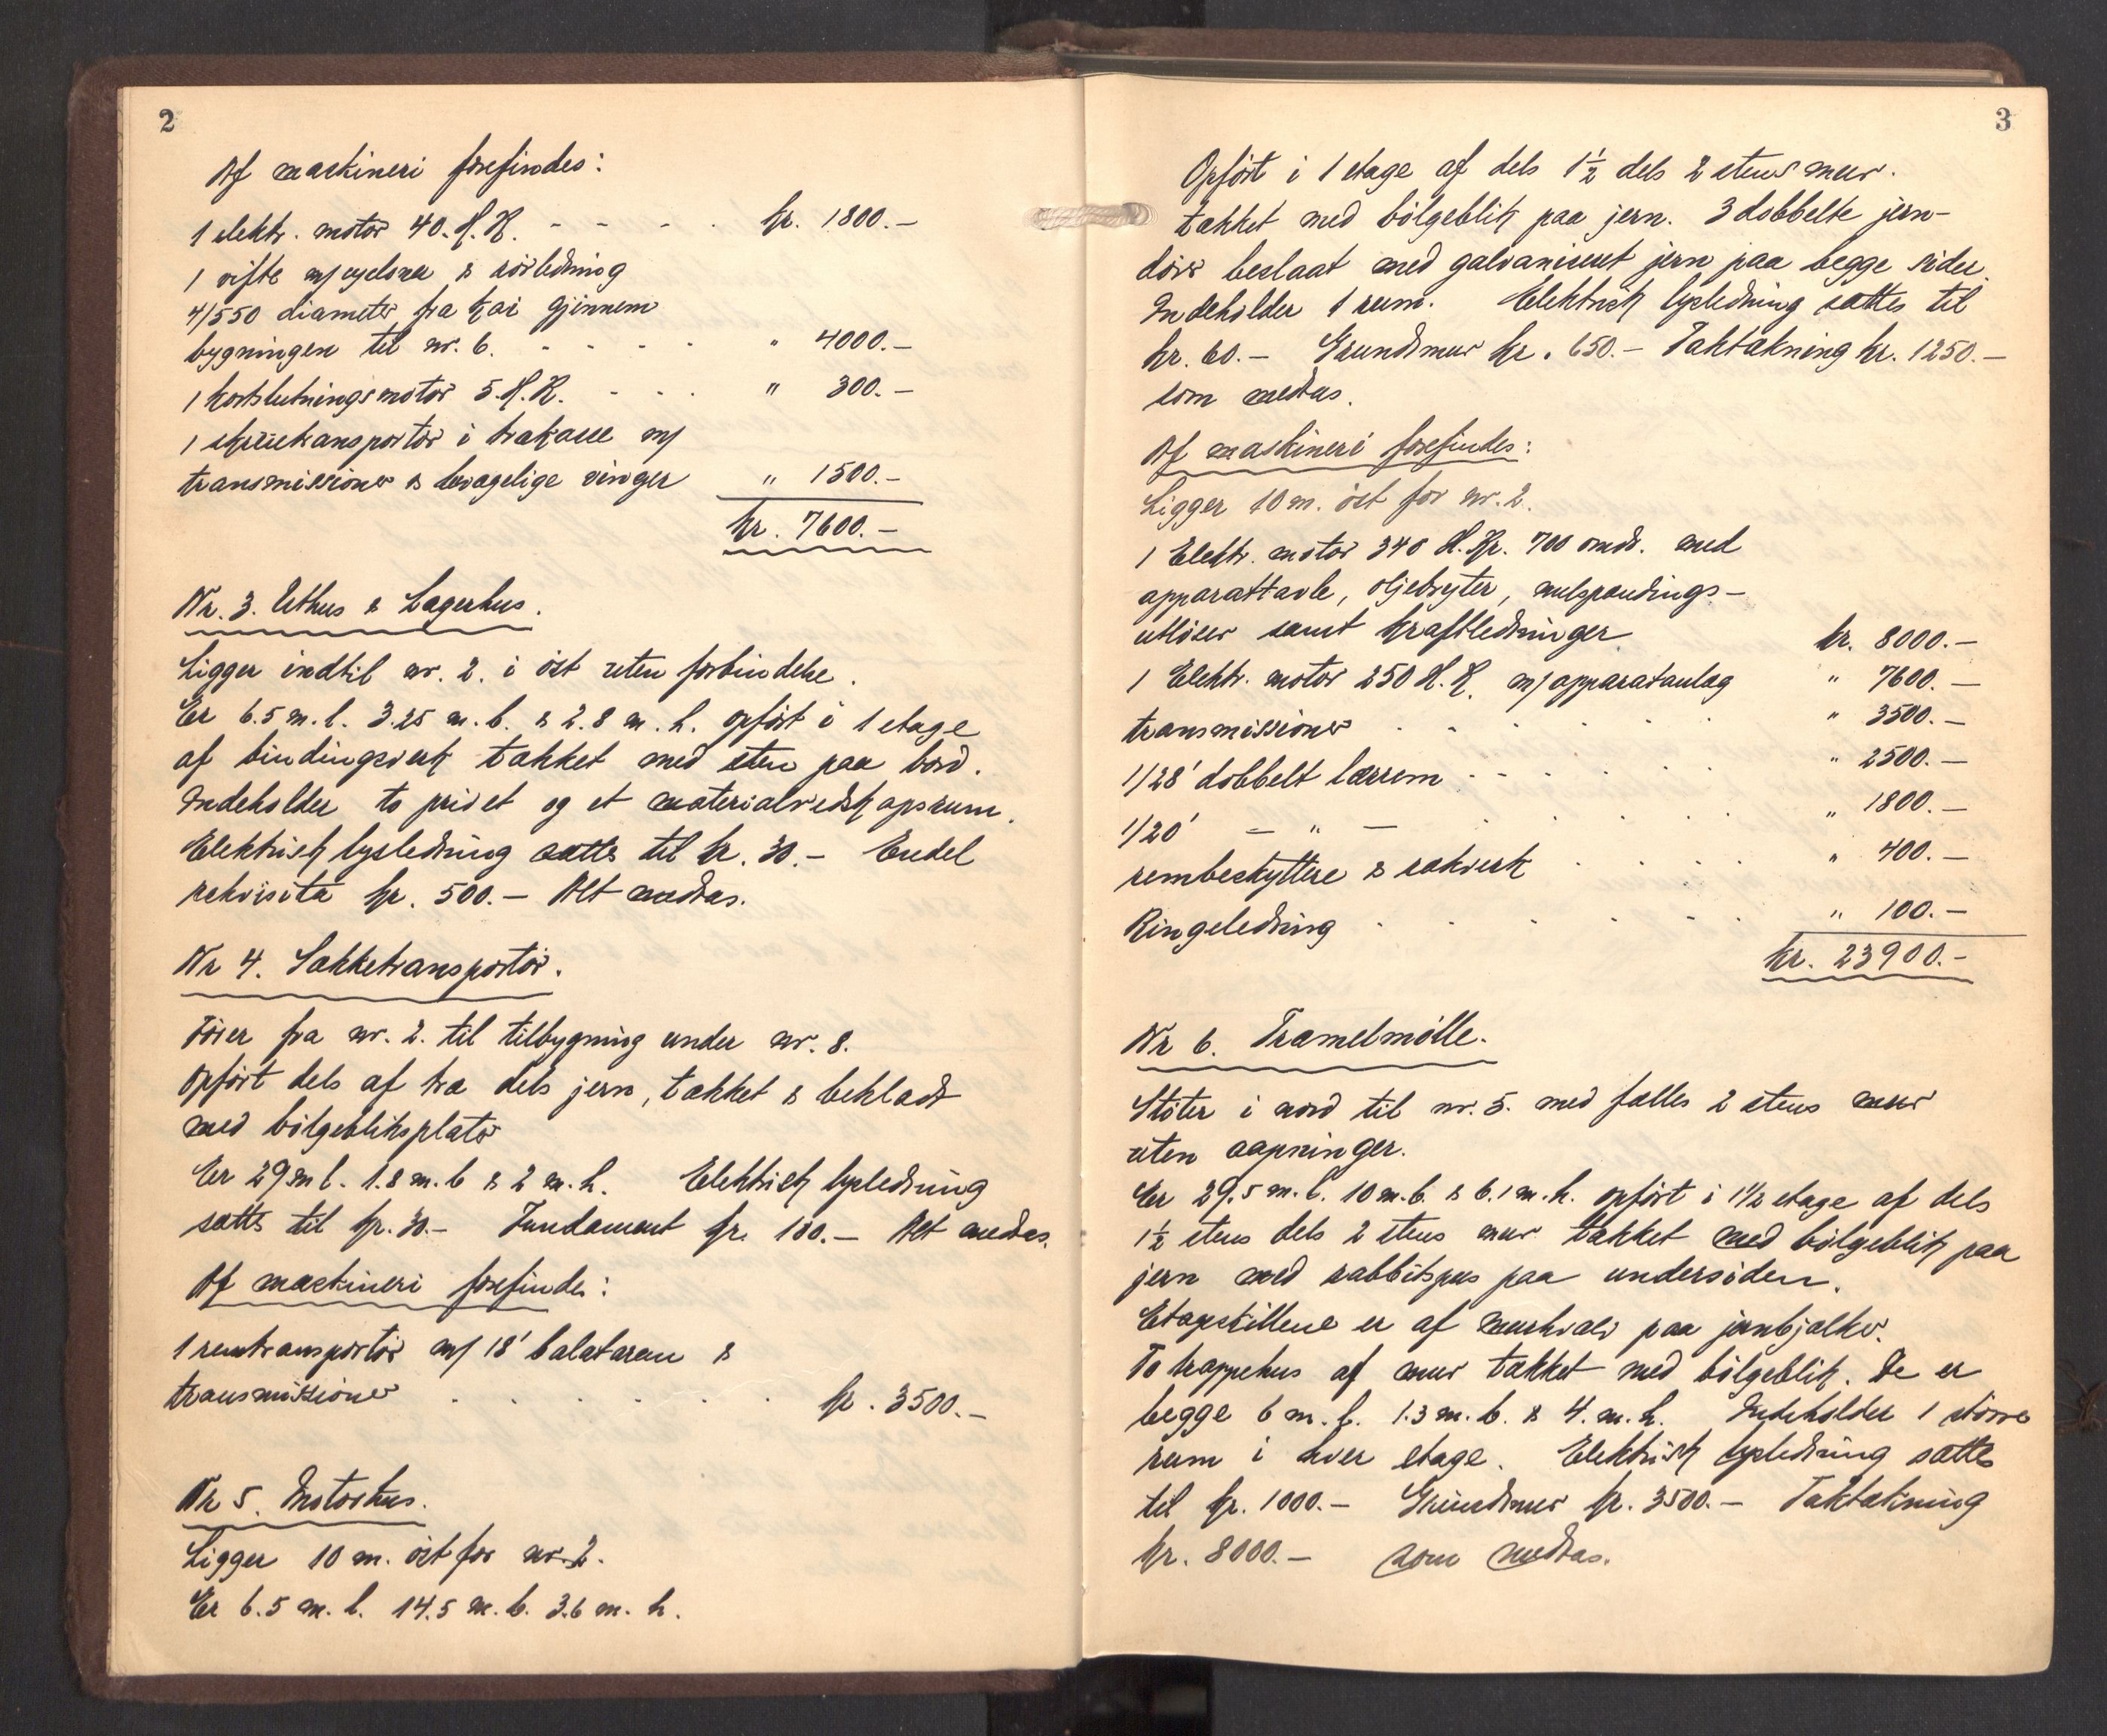 2
Af maskineri forefindes:
1 elektr. motor 40. H.K. - - - . kr. 1800.-
1 vifte m/ cyclone & rörledning
4/550 diameter fra kar gjennem
bygningen til nr. 6. - - - - " 4000.-
1 kortslutningsmotor 5. H.K. - - . " 300.-
1 skruetransportör i trækasse m/
transmissioner & bevægelige vinger " 1500.-
kr. 7600.-
Nr. 3. Uthus & Lagerhus.
Ligger indtil nr. 2. i öst uten forbindelse.
Er 6.5 m. l. 3.25 m. b. & 2.8 m. h. opfört i 1 etage
af bindingsverk tækket med sten paa bord.
Indeholder to privet og et materialredskapsrum.
Elektrisk lysledning sættes til kr. 30.- Endel
rekvisita kr. 500.- Alt medtas.
Nr 4. Sækketransportör.
Förer fra nr. 2. til tilbygning under nr. 8.
Opfört dels af træ dels jern, tækket & beklædt
med bölgebliksplater
Er 29. m l. 1.8 m. b & 2 m. h. Elektrisk lysledning
sættes til kr. 30.- Fundament kr. 100.- Alt medtas.
Af maskineri forefindes:
1 remtransportör m/ 18' balatarem &
transmissioner . . . . . . kr. 3500.-
Nr 5. Motorhus.
Ligger 10 m. öst for nr. 2.
Er 6.5 m. l. 14.5 m. b. 3.6 m. h.
3
Opfört i 1 etage af dels 1½ dels 2 stens mur.
tækket med bölgeblik paa jern. 3 dobbelte jern-
dörer beslaat med galvaniseret jern paa begge sider.
Indeholder 1 rum. Elektrisk lysledning sættes til
kr. 60.- Grundmur kr. 650.- Taktækning kr. 1250.-
som medtas.
Af maskineri forefindes:
Ligger 10 m. öst for nr. 2.
1 Elektr. motor 340 H. Kr. 700 omdr. med
apparattavle, oljebryter, nulspændings-
utlöser samt kraftledninger kr. 8000.-
1 Elektr. motor 250 H. K. m/ apparatanlæg " 7600.-
transmissioner . - . . . . " 3500.-
1/28' dobbelt lærrem - - - . . . " 2500.-
1/20' - " - . . . . . " 1800.-
rembeskyttere & rækverk . . . . " 400.-
Ringeledning . . . . . . " 100.-
kr. 23900.-
Nr 6. Tramelmölle.
Stöter i nord til nr. 5. med fælles 2 stens mur
uten aapninger.
Er 29.5 m. l. 10 m. b. & 6.1 m. h. opfört i 1½ etage af dels
1½ stens dels 2 stens mur tækket med bölgeblik paa
jern med rabbitspus paa undersiden.
Etageskillene er af murhvælv paa jernbjælker.
To trappehus af mur tækket med bölgeblik. De er
begge 6 m. l. 1.3 m. b. & 4. m. h. Indeholder 1 större
rum i hver etage. Elektrisk lysledning sættes
til kr. 1000.- Grundmur kr. 3500.- Taktækning
kr. 8000.- som medtas.